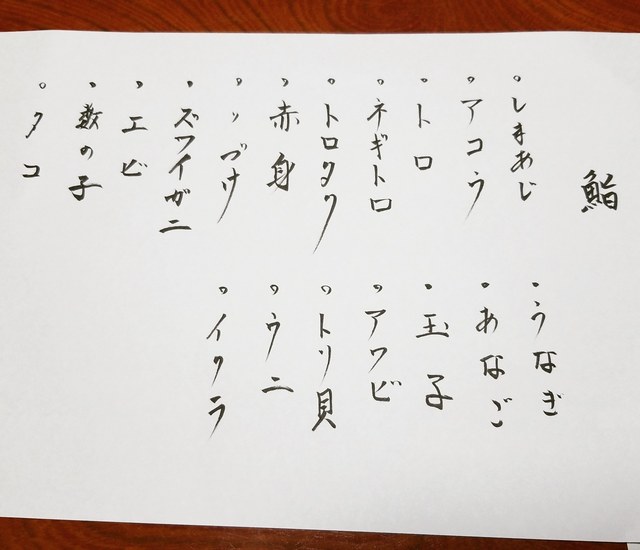 鮨
・しまあじ
・アコウ
・トロ
・ネギトロ
・トロタク
・赤身
・〃づけ
・ズワイガニ
・エビ
・数の子
・タコ
・うなぎ
・あなご
・玉子
・アワビ
・トリ貝
・ウニ
・イクラ